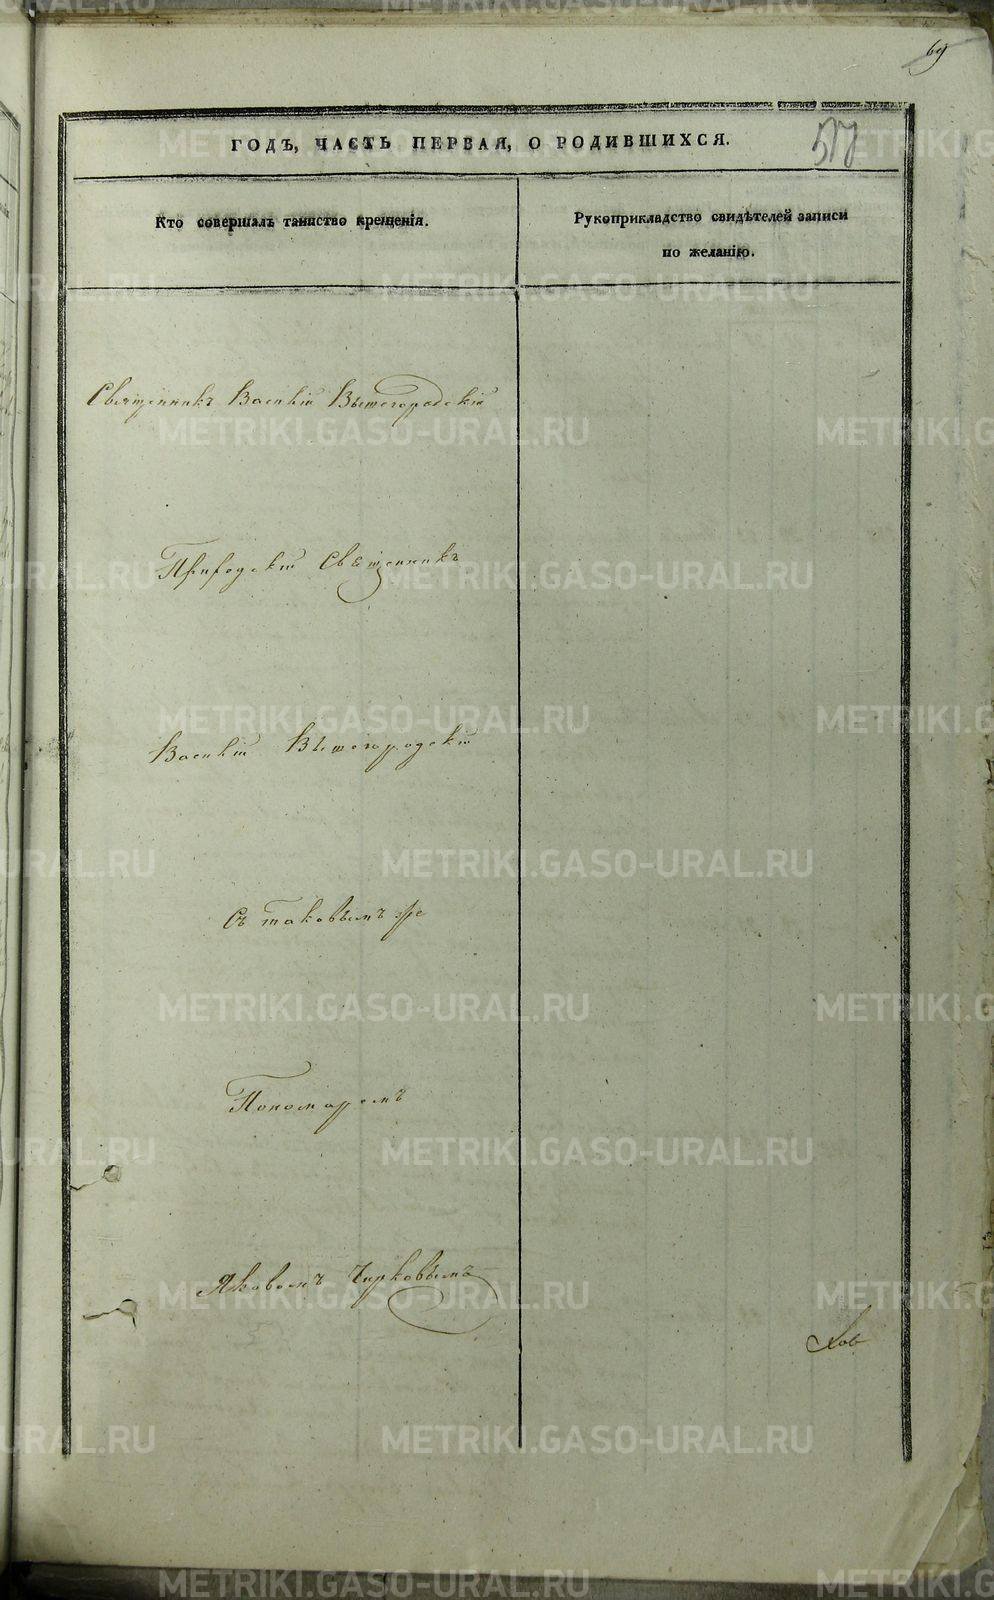 69
ГОДЪ, ЧАСТЬ ПЕРВАЯ, О РОДИВШИХСЯ.
517
Кто совершалъ таинство крещенія.
Рукоприкладство свидѣтелей записи
по желанію.
Священникъ Василій Вышегородскій
Приходскій Священникъ
Василій Вышегородскій
съ таковымъ же
Пономаремъ
Яковомъ Чирковымъ
METRIKI.GASO-URAL.RU